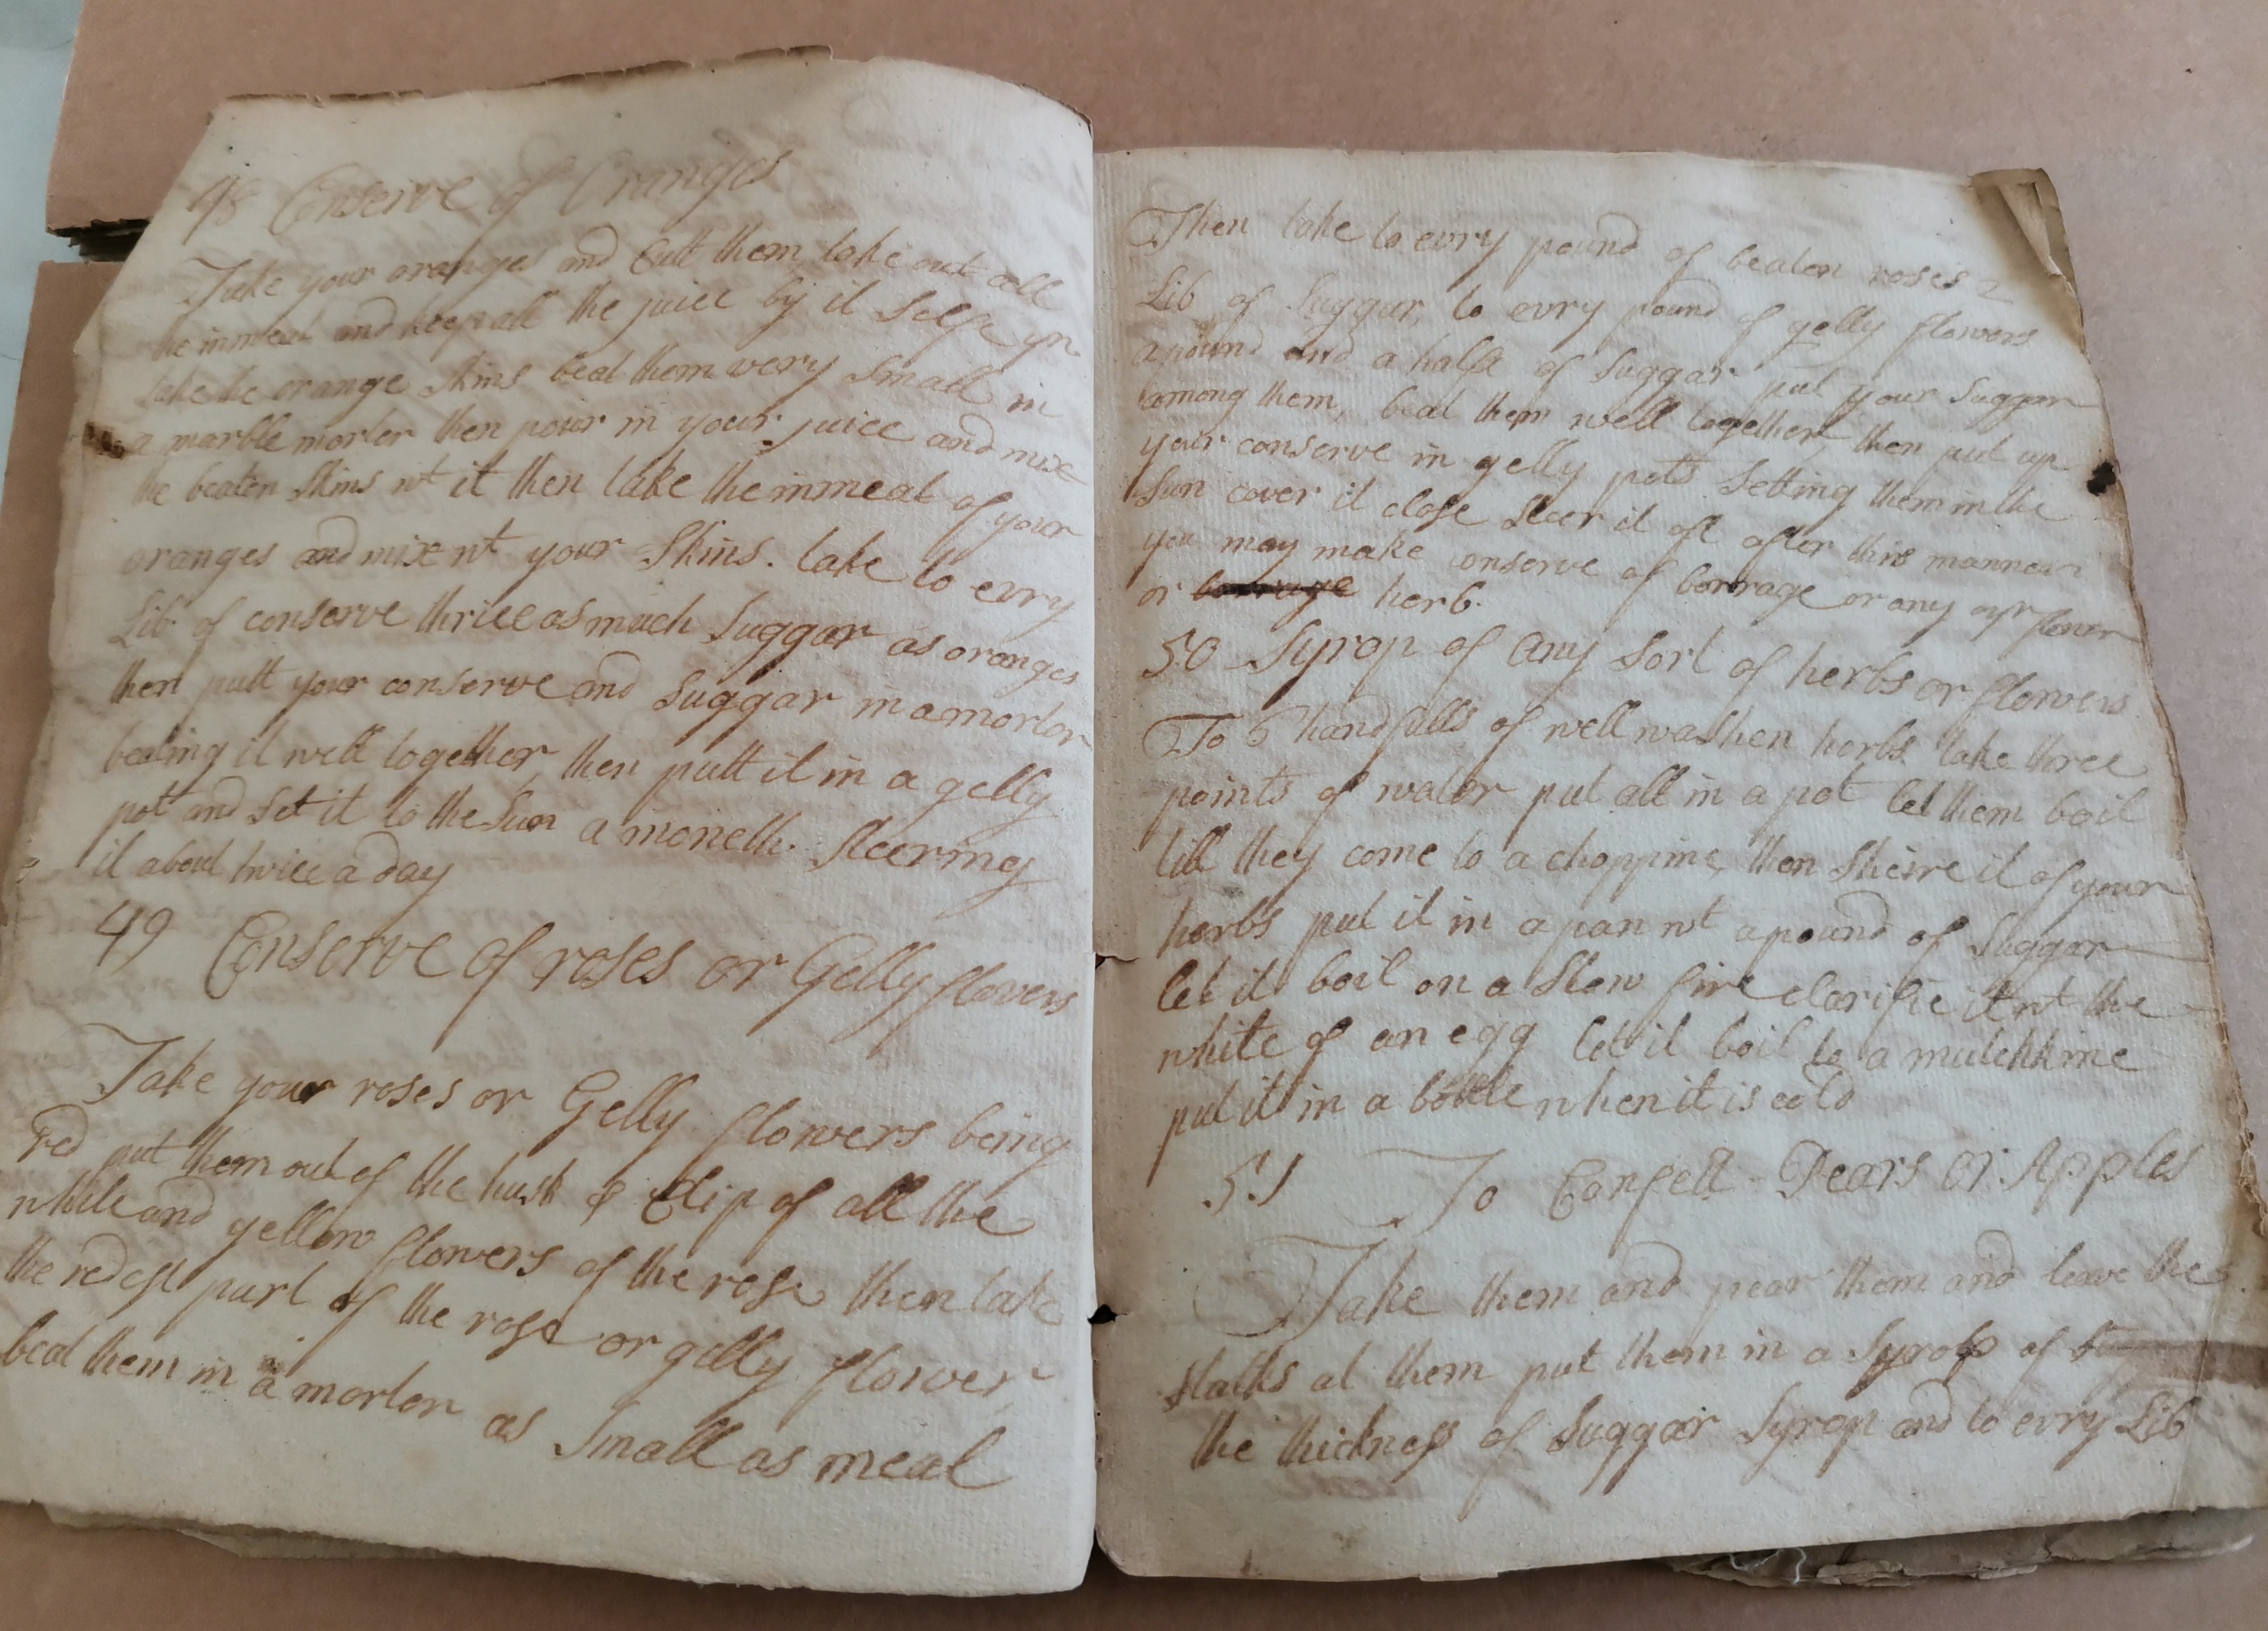 48 Conserve of Oranges
Take your oranges and Cutt them, take out all
the inmeat and keep all the juice by it Self yn
take the orange skins beat them very Small in
a marble morter then pour in your juice and mix
the beaten Skins wt it then take the inmeat of your
oranges and mix wt your Skins. take to evry
Lib of conserve thrice as much Suggar as oranges
then putt your conserve and Suggar in a morter
beating it well together, then putt it in a gelly
pot and Set it to the Sun a moneth. Steering
it about twice a day
49 Conserve of roses or Gelly flowers
Take your roses or Gelly flowers being
red put them out of the husk & Clip of all the
white and yellow flowers of the rose then take
the redest part of the rose or gelly flower
beat them in a morter as Small as meal
Then take to evry pound of beaten roses 2
Lib of Suggar, to evry pound of gelly flowers
a pound and a half of Suggar put your Suggar
among them, beat them well together, then put up
your conserve in gelly pots Setting them in the
Sun cover it close steer it oft after this manner
you may make conserve of borrage or any oyr flower
or borrage herb.
50 Syrop of any Sort of herbs or flowers
To 6 handfulls of well washen herbs take three
points of water put all in a pot let them boil
till they come to a choppine, then sheire it of your
herbs put it in a pan wt a pound of Suggar
let it boil on a Slow fire clarifie it wt the
white of an egg let it boil to a mutchkine
put it in a bottle when it is cold
51 To Confect Pears or Apples
Take them and pear them and leave the
stalks at them put them in a Syrop of
the thickness of Suggar Syrop and to evry Lib